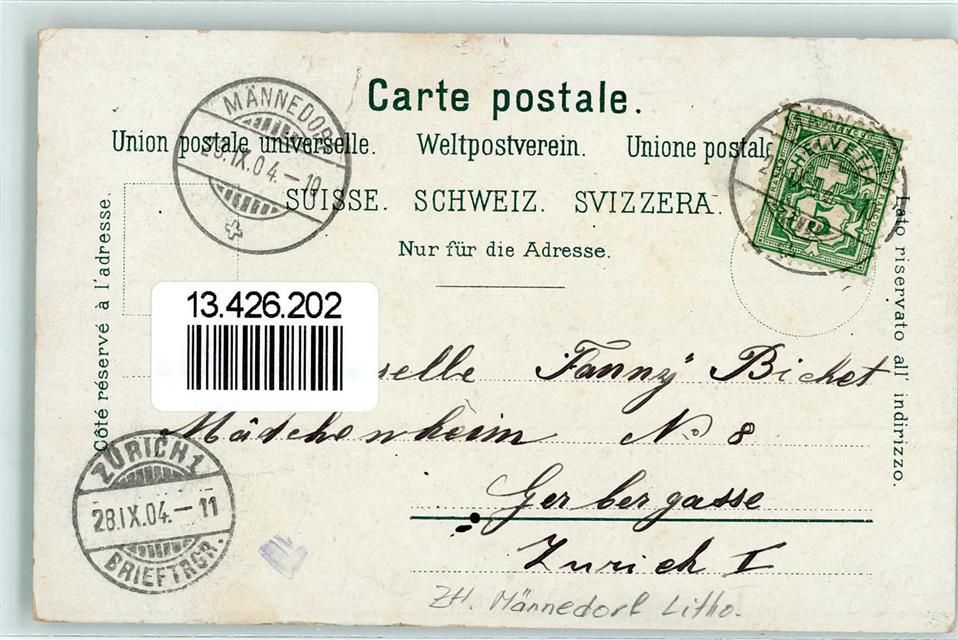 Carte postale.
Union postale universelle. Weltpostverein. Unione postale
SUISSE. SCHWEIZ. SVIZZERA.
Nur für die Adresse.
MÄNNEDORF
28.IX.04.-10
HELVETIA
5
Côté réservé à l'adresse.
Lato riservato all' indirizzo.
13.426.202
selle Fanny Bichet
Mädchenheim No 8
Gerbergasse
Zurich I
ZÜRICH 1
28.IX.04.-11
BRIEFTRGR.
ZH. Männedorf Litho.